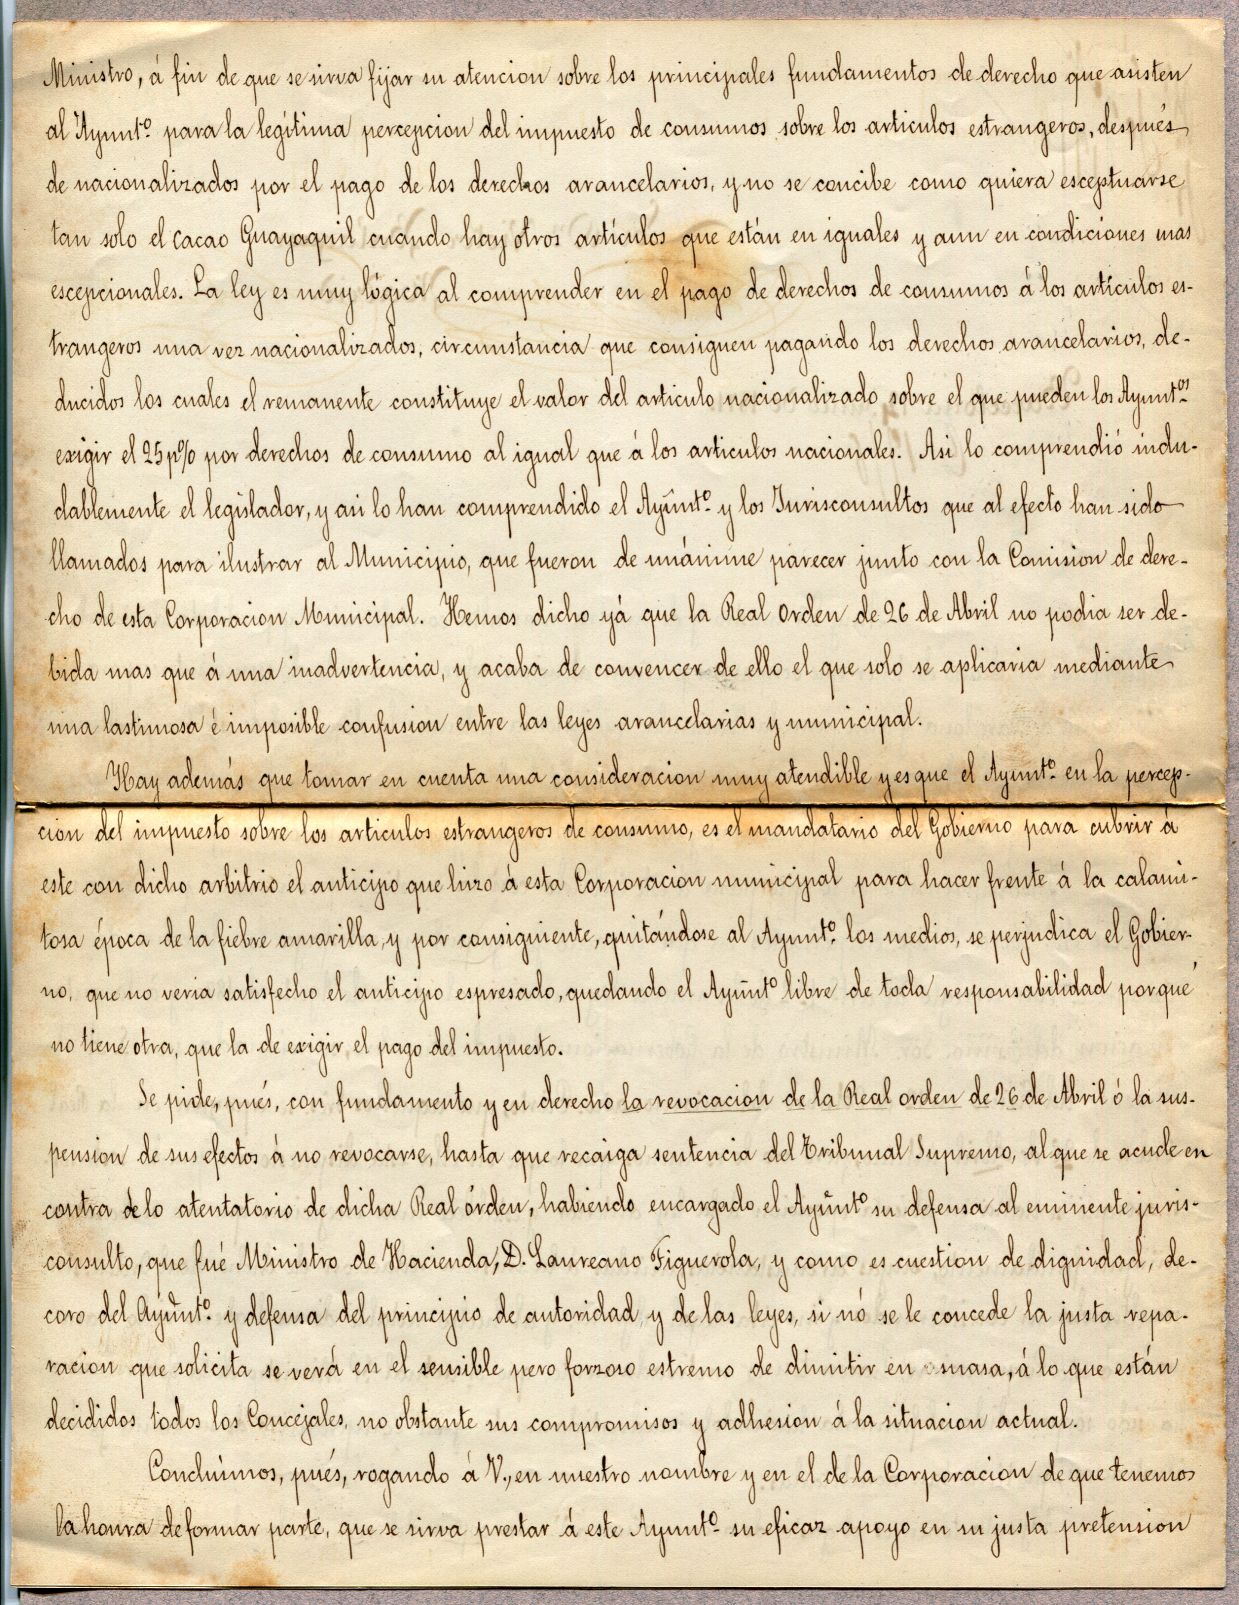 Ministro, á fin de que se sirva fijar su atencion sobre los principales fundamentos de derecho que asisten
al Ayunt.º para la legítima percepcion del impuesto de consumos sobre los articulos estrangeros, después
de nacionalizados por el pago de los derechos arancelarios, y no se concibe como quiera esceptuarse
tan solo el cacao Guayaquil cuando hay otros artículos que están en iguales y aun en condiciones mas
escepcionales. La ley es muy lógica al comprender en el pago de derechos de consumos á los artículos es-
trangeros una vez nacionalizados, circunstancia que consiguen pagando los derechos arancelarios, de-
ducidos los cuales el remanente constituye el valor del articulo nacionalizado sobre el que pueden los Ayunt.os
exigir el 25 p% por derechos de consumo al igual que á los articulos nacionales. Asi lo comprendió indu-
dablemente el legislador, y asi lo han comprendido el Ayunt.º y los Jurisconsultos que al efecto han sido
llamados para ilustrar al Municipio, que fueron de unánime parecer junto con la Comision de dere-
cho de esta Corporacion Municipal. Hemos dicho yá que la Real Orden de 26 de Abril no podia ser de-
bida mas que á una inadvertencia, y acaba de convencer de ello el que solo se aplicaria mediante
una lastimosa é imposible confusion entre las leyes arancelarias y municipal.
Hay además que tomar en cuenta una consideracion muy atendible y es que el Ayunt.º en la percep-
cion del impuesto sobre los articulos estrangeros de consumo, es el mandatario del Gobierno para cubrir á
este con dicho arbitrio el anticipo que hizo á esta Corporacion municipal para hacer frente á la calami-
tosa época de la fiebre amarilla, y por consiguiente, quitándose al Ayunt.º los medios, se perjudica el Gobier-
no, que no veria satisfecho el anticipo espresado, quedando el Ayuñtº libre de toda responsabilidad porque
no tiene otra, que la de exigir el pago del impuesto.
Se pide, pués, con fundamento y en derecho la revocacion de la Real orden de 26 de Abril ó la sus-
pension de sus efectos á no revocarse, hasta que recaiga sentencia del Tribunal Supremo, al que se acude en
contra de lo atentatorio de dicha Real órden, habiendo encargado el Ayuñtº su defensa al eminente juris-
consulto, que fué Ministro de Hacienda, D. Laureano Figuerola, y como es cuestion de dignidad, de-
coro del Ayuñt.º y defensa del principio de autoridad y de las leyes, si nó se le concede la justa repa-
racion que solicita se verá en el sensible pero forzoso estremo de dimitir en masa, á lo que están
decididos todos los Concejales, no obstante sus compromisos y adhesion á la situacion actual.
Concluimos, pués, rogando á V., en nuestro nombre y en el de la Corporacion de que tenemos
la honra de formar parte, que se sirva prestar á este Ayunt.º su eficaz apoyo en su justa pretension